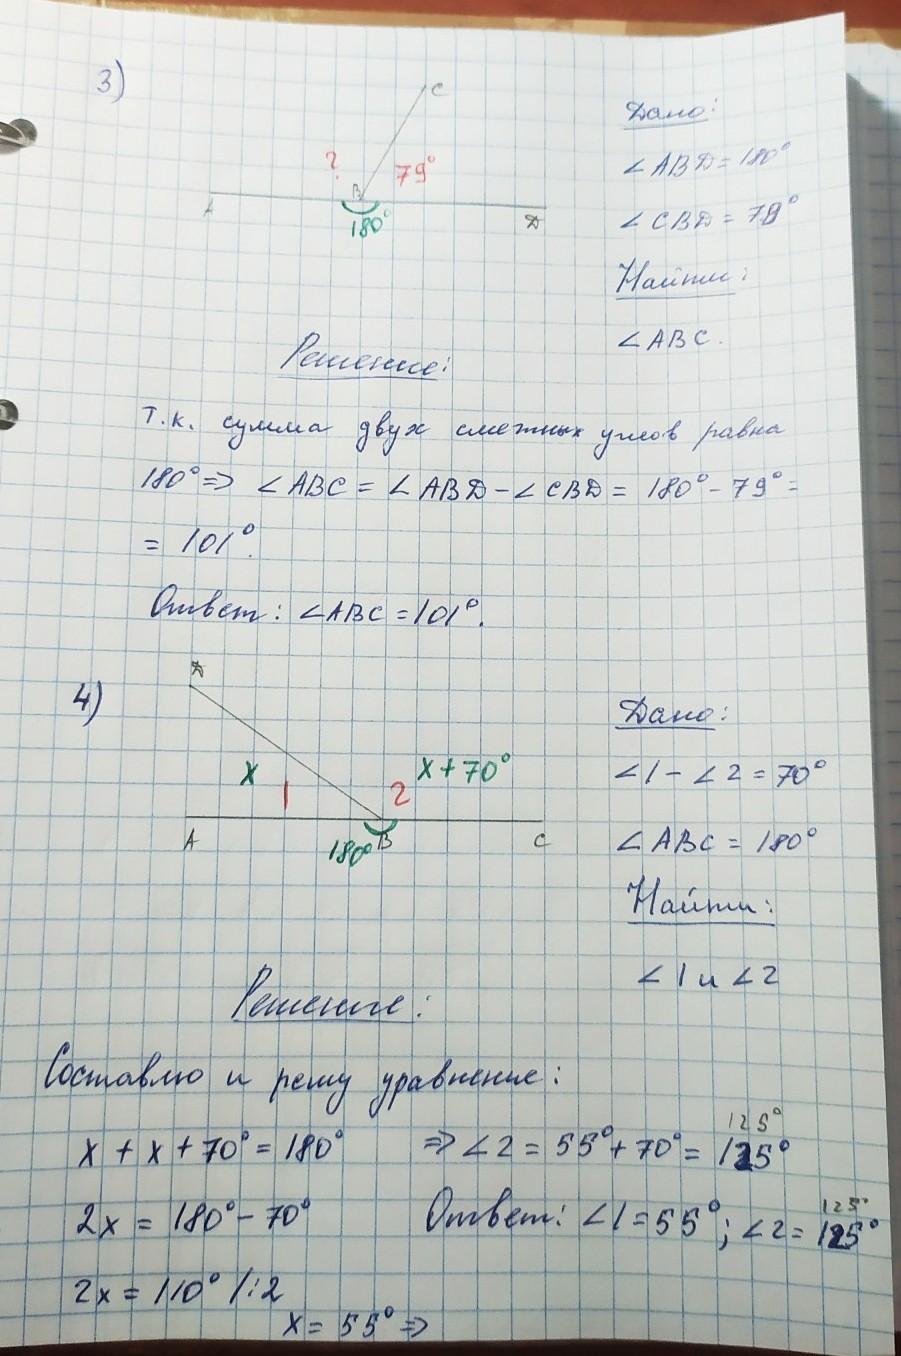 3)
C
? 79°
A B D
180°
Дано:
∠ABD = 180°
∠CBD = 79°
Найти:
∠ABC.
Решение:
Т.к. сумма двух смежных углов равна
180° ⇒ ∠ABC = ∠ABD - ∠CBD = 180° - 79° =
= 101°.
Ответ: ∠ABC = 101°.
4)
D
x x + 70°
1 2
A B C
180°
Дано:
∠1 - ∠2 = 70°
∠ABC = 180°
Найти:
∠1 и ∠2
Решение:
Составлю и решу уравнение:
x + x + 70° = 180°
2x = 180° - 70°
2x = 110° /:2
x = 55° ⇒
125°
⇒ ∠2 = 55° + 70° = 125°
125°
Ответ: ∠1 = 55°; ∠2 = 125°